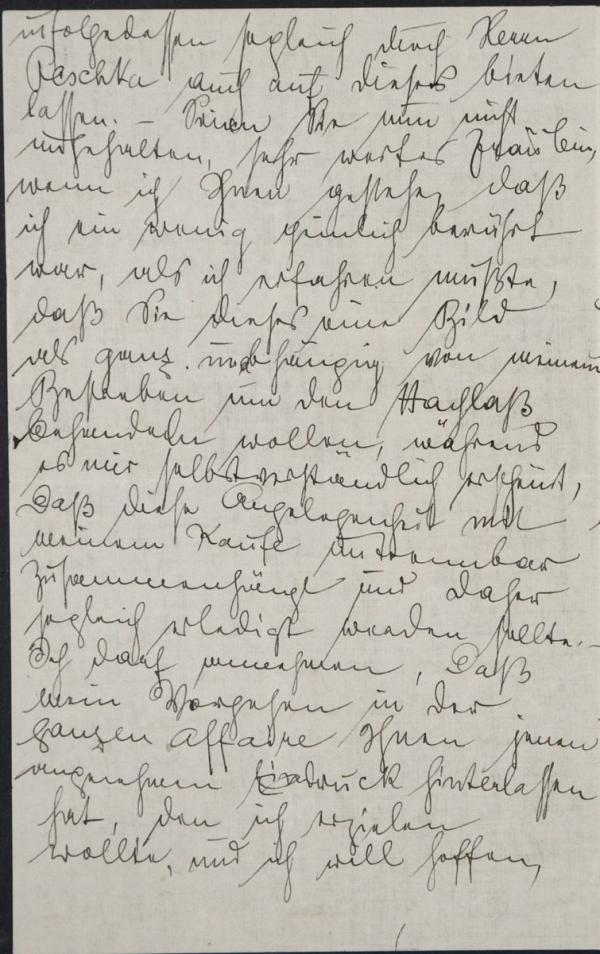 infolgedessen sogleich durch Herrn
Peschka auch auf dieses bieten
lassen. – Seien Sie nun nicht
ungehalten, sehr wertes Fräulein,
wenn ich Ihnen gestehe, daß
ich ein wenig peinlich berührt
war, als ich erfahren mußte,
daß Sie dieses eine Bild
als ganz unabhängig von meinem
Bestreben um den Nachlaß
behandeln wollen, während
es mir selbstverständlich erscheint,
daß diese Angelegenheit mit
meinem Kaufe untrennbar
zusammenhängt und daher
sogleich erledigt werden sollte. –
Ich darf annehmen, daß
mein Vorgehen in der
ganzen Affaire Ihnen jenen
angenehmen Eindruck hinterlassen
hat, den ich erzielen
wollte, und ich will hoffen,